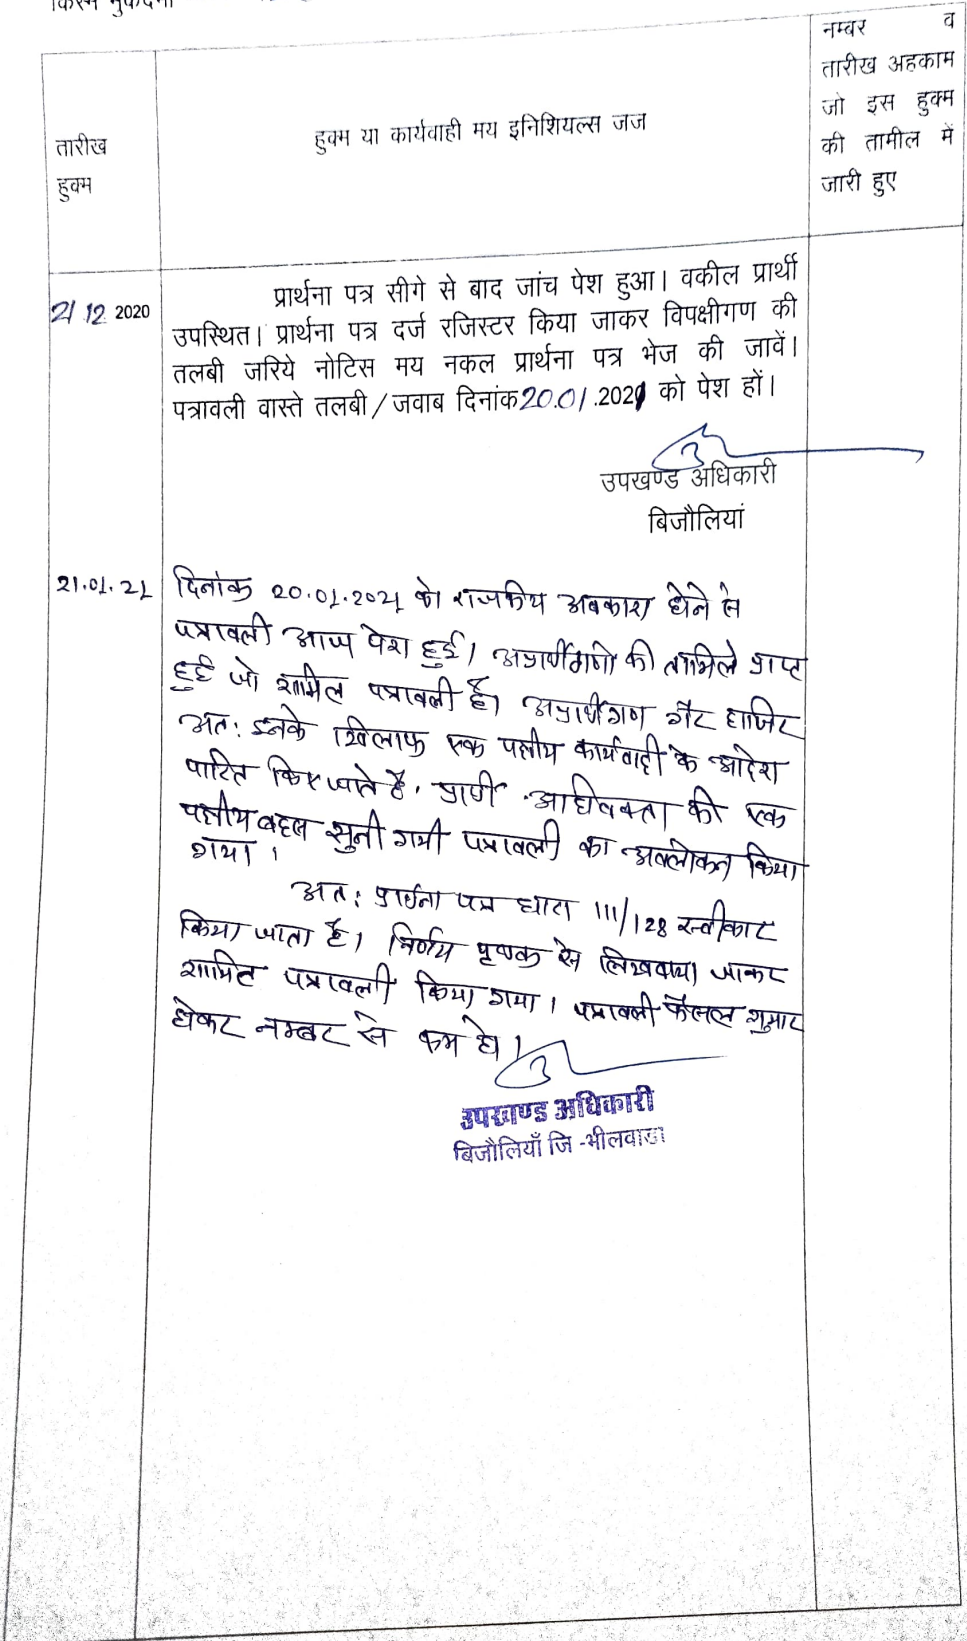 किस्म मुकदमा
नम्बर व
तारीख अहकाम
जो इस हुक्म
की तामील में
जारी हुए
हुक्म या कार्यवाही मय इनिशियल्स जज
तारीख
हुक्म
21 12 2020
प्रार्थना पत्र सीगे से बाद जांच पेश हुआ। वकील प्रार्थी
उपस्थित। प्रार्थना पत्र दर्ज रजिस्टर किया जाकर विपक्षीगण की
तलबी जरिये नोटिस मय नकल प्रार्थना पत्र भेज की जावें।
पत्रावली वास्ते तलबी/जवाब दिनांक 20.01.2021 को पेश हों।
उपखण्ड अधिकारी
बिजौलियां
21.01.21 दिनांक 20.01.2021 को राजकीय अवकाश होने से
पत्रावली आज पेश हुई। अप्रार्थीगणो की तामिले प्राप्त
हुई जो शामिल पत्रावली है। अप्रार्थीगण गैर हाजिर
अतः इनके खिलाफ एक पक्षीय कार्यवाही के आदेश
पारित किए जाते है, प्रार्थी अधिवक्ता की एक
पक्षीय बहस सुनी गयी पत्रावली का अवलोकन किया
गया।
अतः प्रार्थना पत्र धारा 111/128 स्वीकार
किया जाता है। निर्णय पृथक से लिखवाया जाकर
शामिल पत्रावली किया गया। पत्रावली फैसल शुमार
होकर नम्बर से कम हो।
उपखण्ड अधिकारी
बिजौलियाँ जि-भीलवाडा